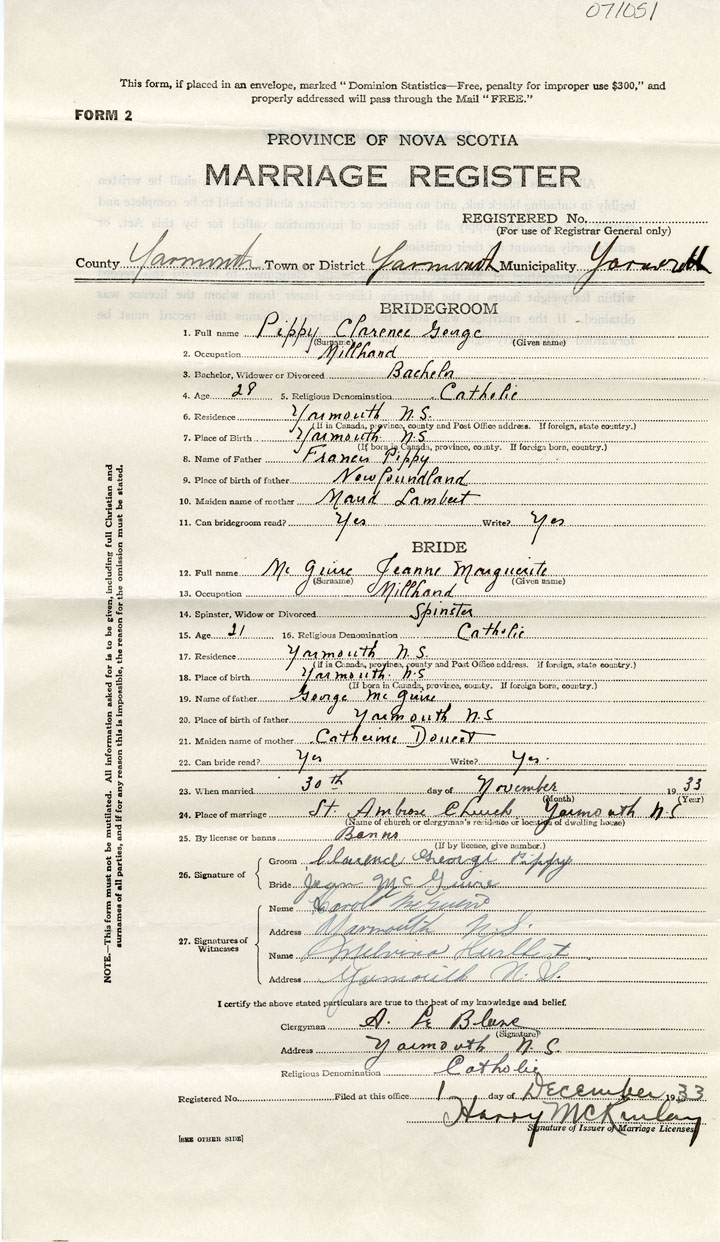 071051
This form, if placed in an envelope, marked “ Dominion Statistics—Free, penalty for improper use $300,” and
properly addressed will pass through the Mail “ FREE.”
FORM 2
PROVINCE OF NOVA SCOTIA
MARRIAGE REGISTER
REGISTERED No.
(For use of Registrar General only)
County Yarmouth Town or District Yarmouth Municipality Yarmouth
BRIDEGROOM
1. Full name Pippy Clarence George
(Surname) (Given name)
2. Occupation Millhand
3. Bachelor, Widower or Divorced Bachelor
4. Age 28 5. Religious Denomination Catholic
6. Residence Yarmouth N.S.
(If in Canada, province, county and Post Office address. If foreign, state country.)
7. Place of Birth Yarmouth N.S
(If born in Canada, province, county. If foreign born, country.)
8. Name of Father Francis Pippy
9. Place of birth of father Newfoundland
10. Maiden name of mother Maud Lambert
11. Can bridegroom read? Yes Write? Yes
BRIDE
12. Full name Mc Guire Jeanne Marguerite
(Surname) (Given name)
13. Occupation Millhand
14. Spinster, Widow or Divorced Spinster
15. Age 21 16. Religious Denomination Catholic
17. Residence Yarmouth N.S.
(If in Canada, province, county and Post Office address. If foreign, state country.)
18. Place of birth Yarmouth N.S
(If born in Canada, province, county. If foreign born, country.)
19. Name of father George Mc Guire
20. Place of birth of father Yarmouth N.S
21. Maiden name of mother Catherine Doucet
22. Can bride read? Yes Write? Yes.
23. When married 30th day of November 1933
(Month) (Year)
24. Place of marriage St. Ambrose Church Yarmouth N.S
(Name of church or clergyman's residence or location of dwelling house)
25. By license or banns Banns
(If by licence, give number.)
26. Signature of
Groom Clarence George Pippy
Bride Jean McGuire
27. Signatures of Witnesses
Name Carol McGuire
Address Yarmouth N.S.
Name Melvina Hurlbert
Address Yarmouth N.S.
I certify the above stated particulars are true to the best of my knowledge and belief.
Clergyman A. Le Blanc
(Signature)
Address Yarmouth N.S.
Religious Denomination Catholic
Registered No. Filed at this office 1 day of December 1933
Harry McKinlay
Signature of Issuer of Marriage Licenses
[SEE OTHER SIDE]
NOTE.—This form must not be mutilated. All information asked for is to be given, including full Christian and
surnames of all parties, and if for any reason this is impossible, the reason for the omission must be stated.